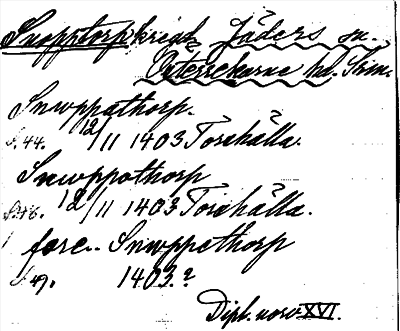 Snopptorp kreat Jäders sn.
Österrekarne hd. Srm.
Snwppathorp.
S. 44. 12/11 1403 Torshälla.
Snwppothorp
S. 46. 12/11 1403 Torshälla.
fore.. Snwppathorp
S. 49. 1403.?
Dipl. norv. XVI.